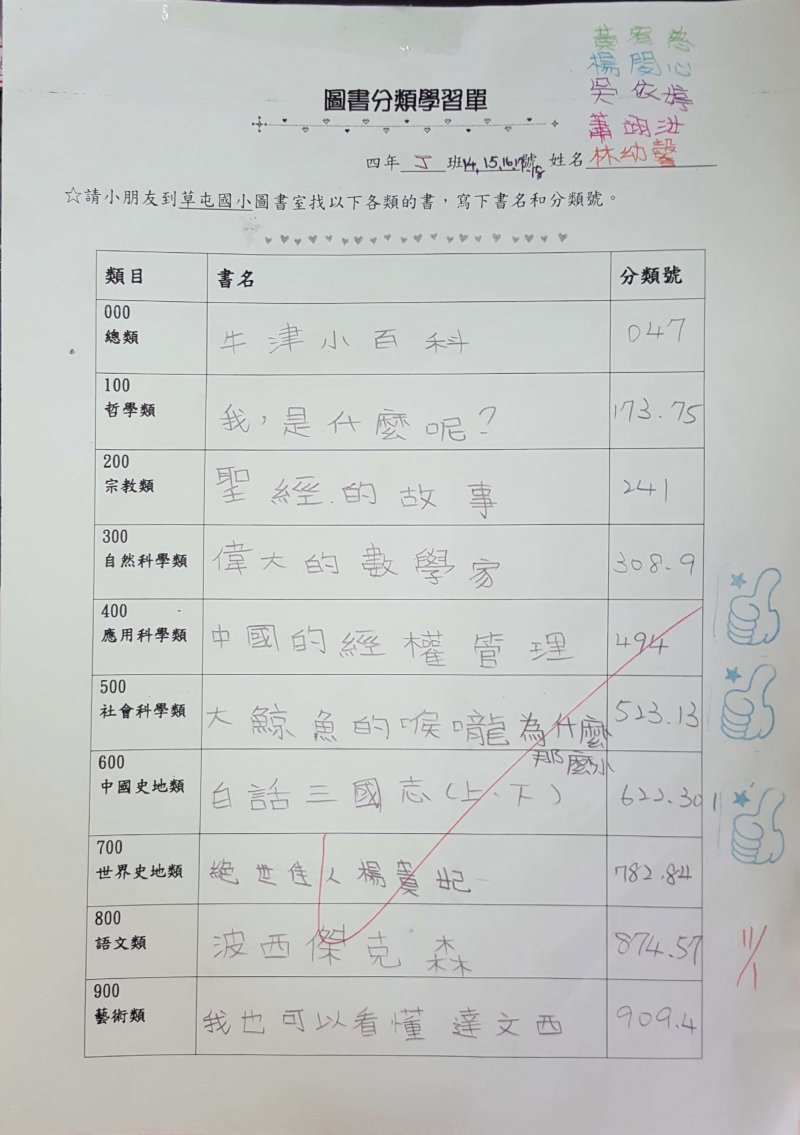 黃宥慈
楊閔心
吳依婷
蕭翊
圖書分類學習單
四年 J 班14,15,16,17,18號 姓名 林幼馨
☆請小朋友到草屯國小圖書室找以下各類的書，寫下書名和分類號。
類目 書名 分類號
000
總類 牛津小百科 047
100
哲學類 我，是什麼呢? 173.75
200
宗教類 聖經的故事 241
300
自然科學類 偉大的數學家 308.9
400
應用科學類 中國的經權管理 494
500
社會科學類 大鯨魚的喉嚨為什麼 523.13
那麼小
600
中國史地類 白話三國志(上、下) 622.301
700
世界史地類 絕世佳人楊貴妃 782.84
800
語文類 波西傑克森 874.57
900
藝術類 我也可以看懂達文西 909.4
11/1